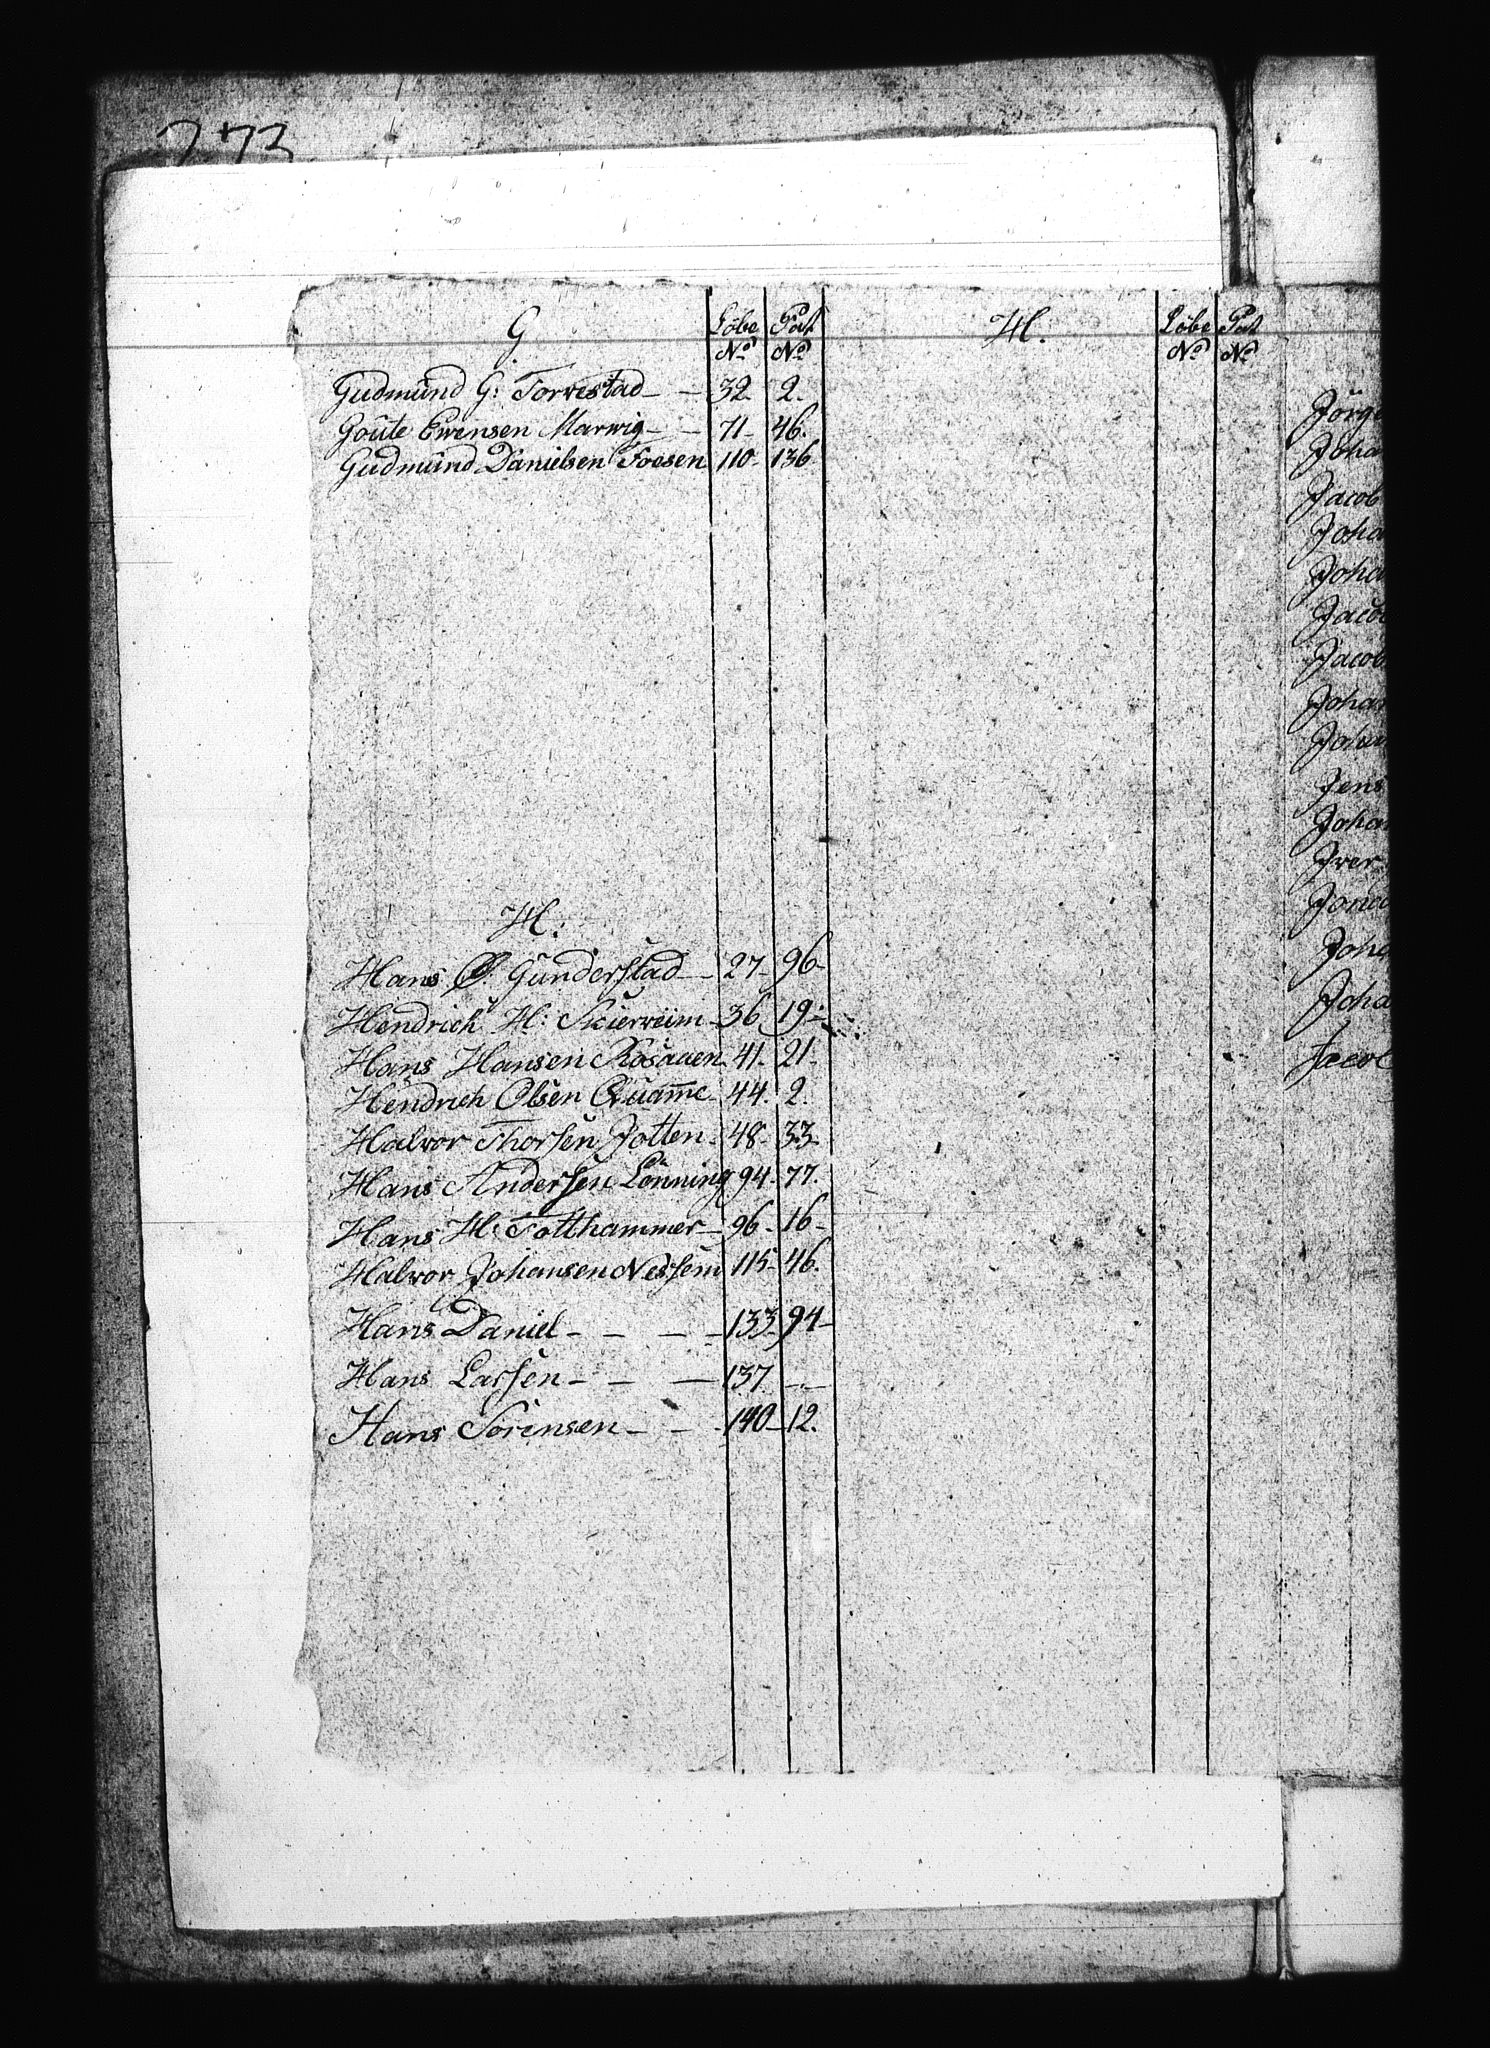 773
G. Löbe Pat H. Löbe Pat
No No No No
Gudmund G: Torvestad 32 2.
Goute Ewensen Marwig 71 46.
Gudmund Danielsen Foesen 110 136
H.
Hans O. Gunderstad 27 96
Hendrich H: Skierveim 36 19
Hans Hansen Rosaaen 41 21
Hendrich Olsen Quamme 44. 2.
Halvor Thorsen Jotten 48 33
Hans Andersen Lönning 94. 77.
Hans H: Totthammer 96 16
Halvor Johansen Nessem 115 46.
Hans Daniel 133 94
Hans Larsen 137
Hans Sörensen 140 12.
Jörge
Joha
Jacob
Joha
Joha
Jacob
Jacob
Johan
Johan
Jens
Johan
Iver
Jonas
Joha
Joha
Jacob